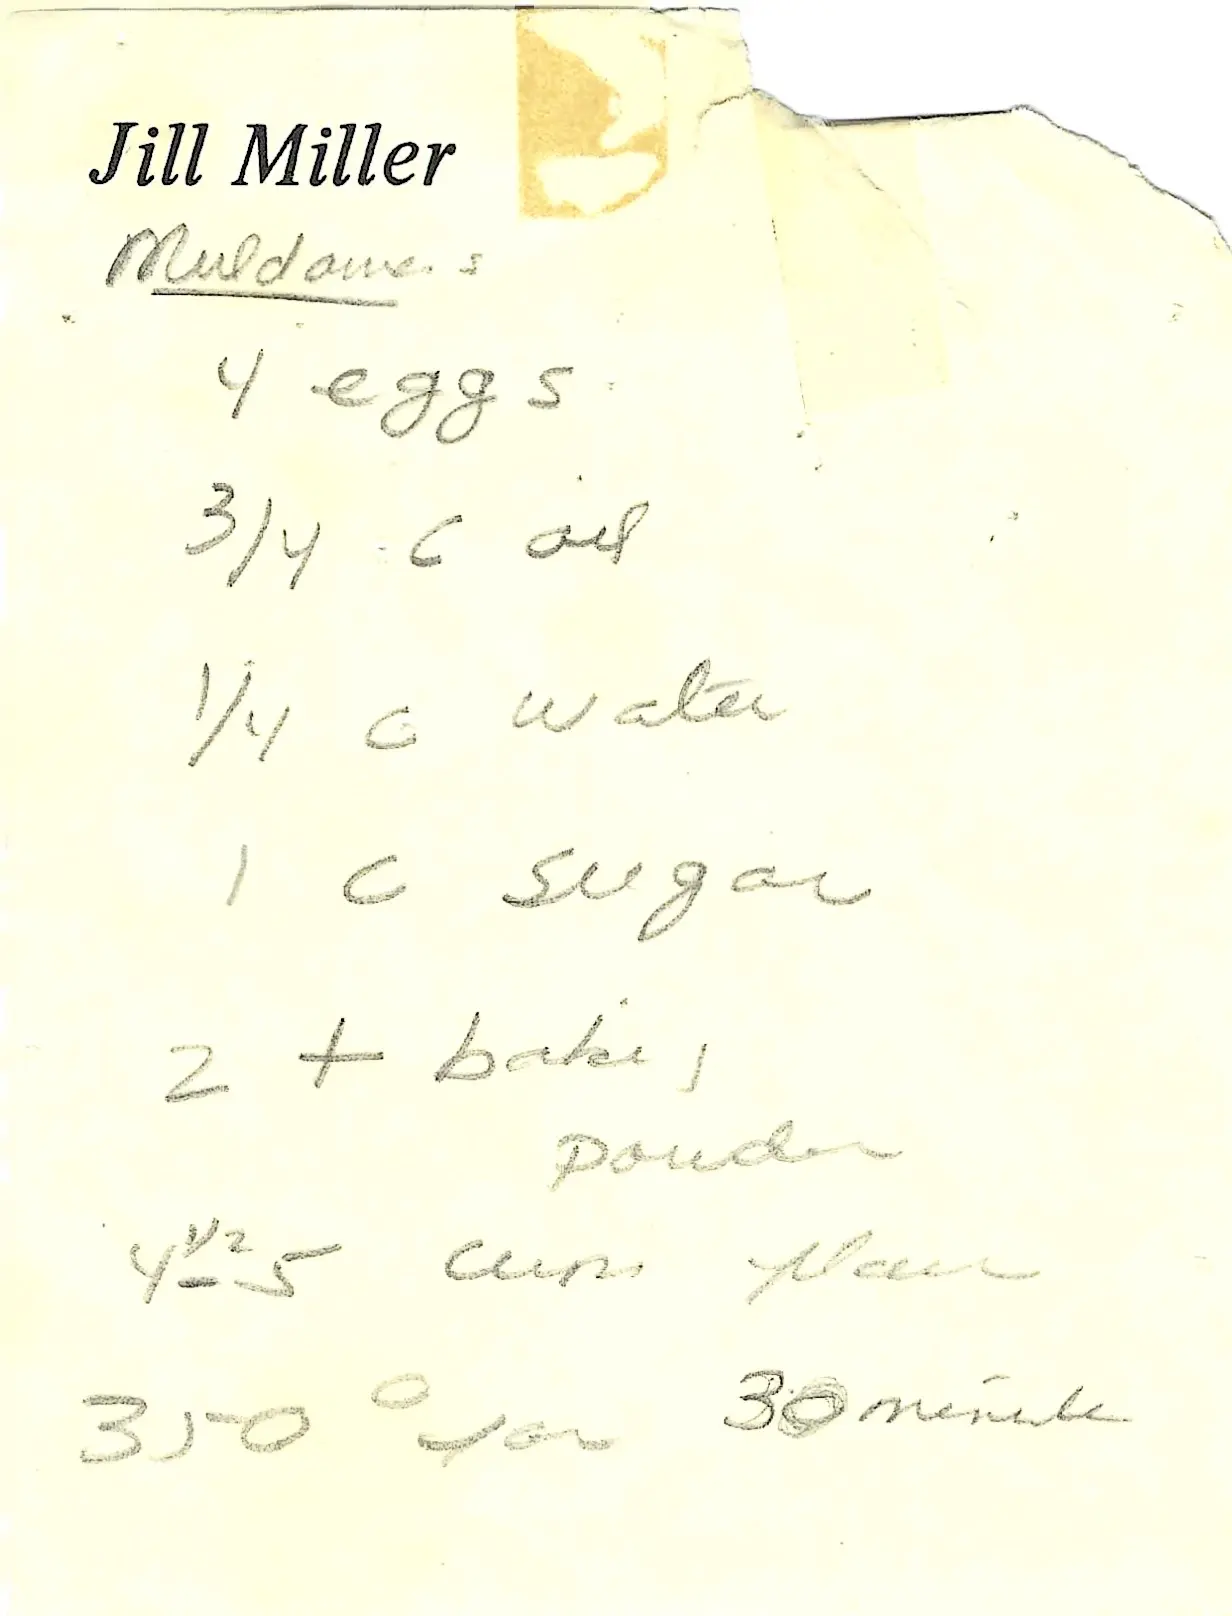 Jill Miller
4 eggs
3/4 c oil
1/4 c water
1 c sugar
2 t baki
powder
4 1/2-5 cups flour
350° for 30 minute